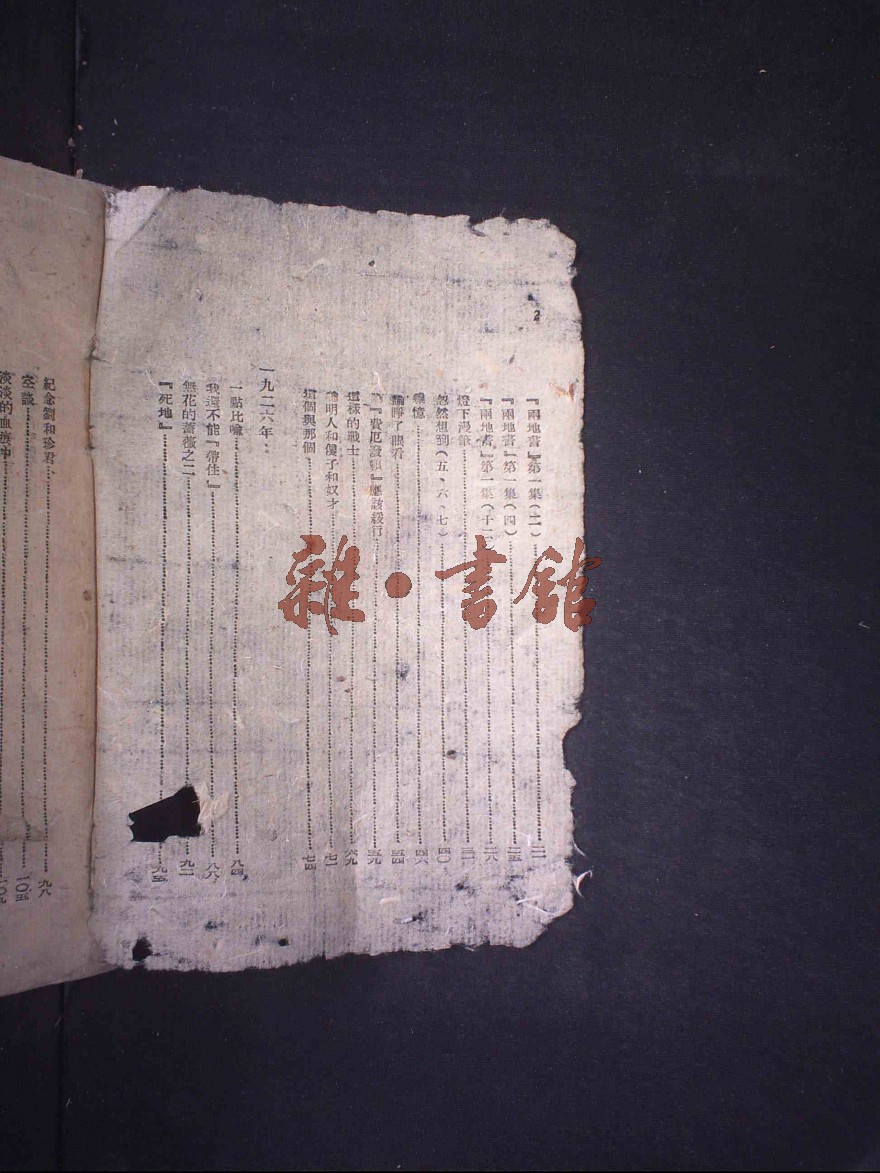 2
『兩地書』第一集(二)……二一
『兩地書』第一集(四)……二五
『兩地書』第一集(十二)……二八
燈下漫筆……三一
忽然想到(五、六、七)……四〇
雜憶……四六
論睜了眼看……五四
論『費厄潑賴』應該緩行……五九
這樣的戰士……六九
聰明人和傻子和奴才……七一
這個與那個……七四
一九二六年：
一點比喻……八四
我還不能『帶住』……八八
無花的薔薇之二……九二
『死地』……九五
紀念劉和珍君……九八
空談……一〇五
淡淡的血痕中……一〇九
雜·書館